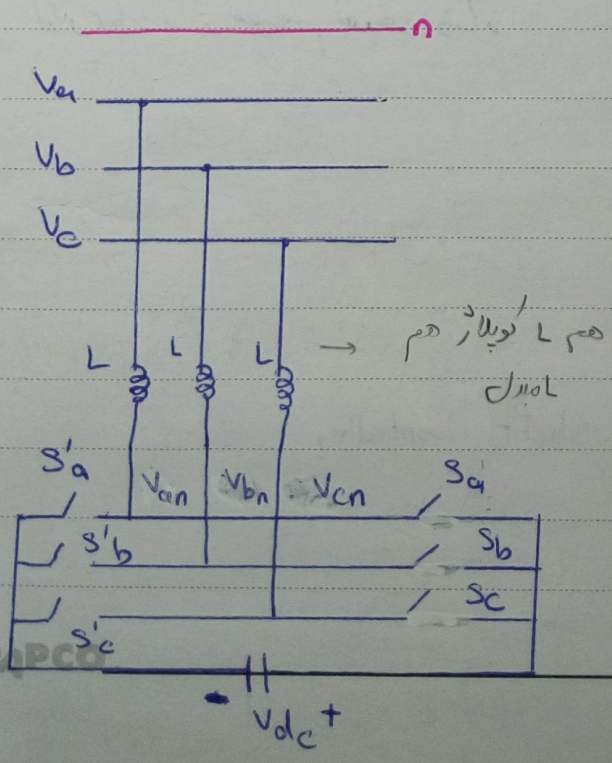 n
Va
Vb
Vc
L L L → هم L کوپلاژ هم
S'a Van Vbn Vcn Sa
S'b Sb
S'c Sc
PCO
- Vdc +